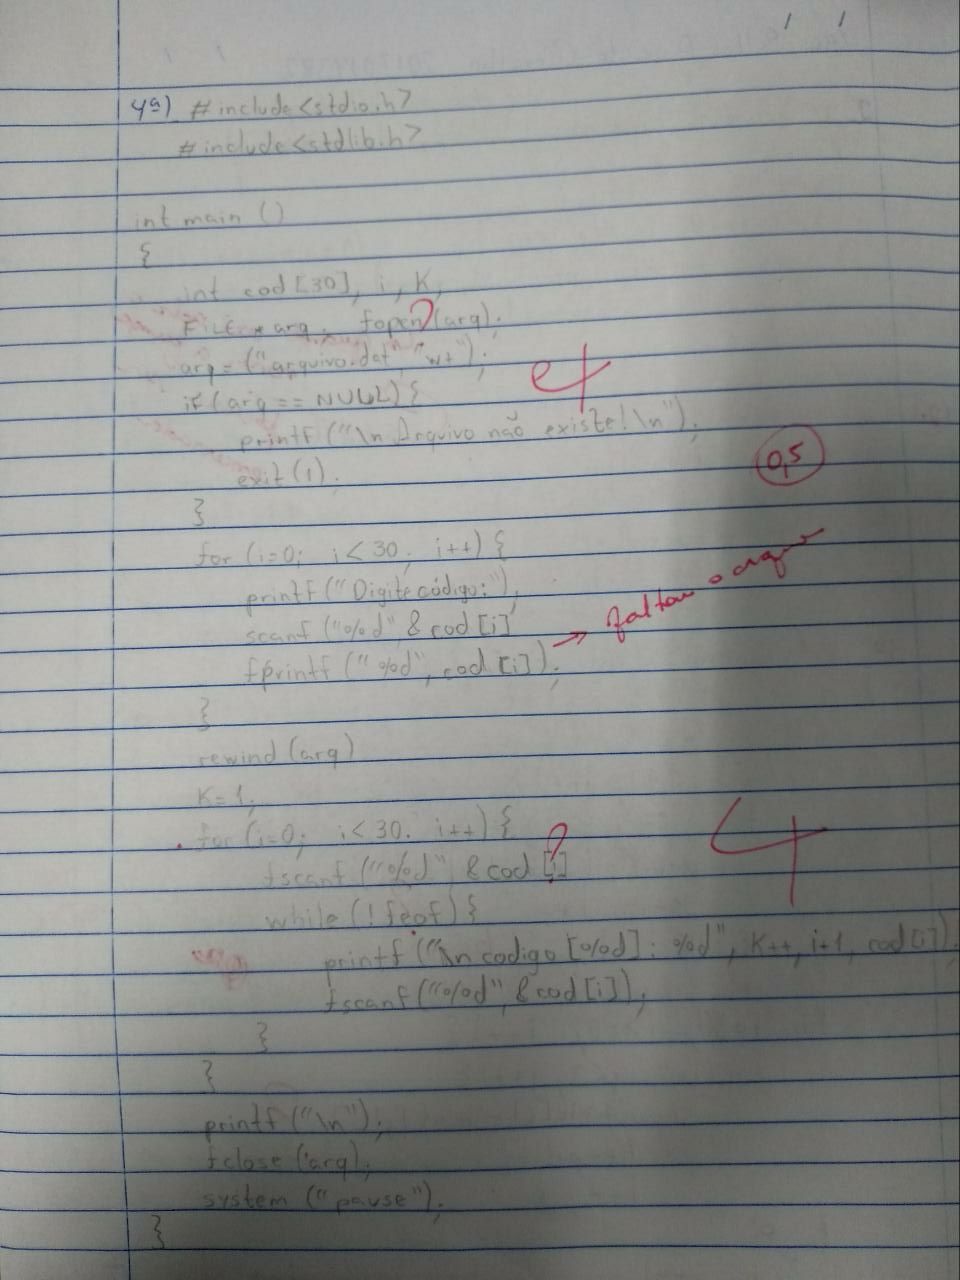 4ª) #include<stdio.h>
#include<stdlib.h>
int main ()
{
int cod[30], i, K,
FILE *arq, fopen?(arq);
arq = ("arquivo.dat", "w+");
if (arq == NULL) {
printf ("\n Arquivo não existe! \n");
exit (1).
0,5
}
for (i=0; i<30. i++) {
printf ("Digite código:"),
scanf ("%d" & cod [i]
fprintf ("%d", cod [i]); → faltou o arq
}
rewind (arq)
K=1;
for (i=0; i<30. i++) {
fscanf ("%d" & cod [i] ?
while (! feof) {
printf ("\n codigo [%d] : %d", K++, i+1, cod[i])
fscanf ("%d", & cod [i]),
}
}
printf ("\n");
fclose (arq);
system ("pause");
}